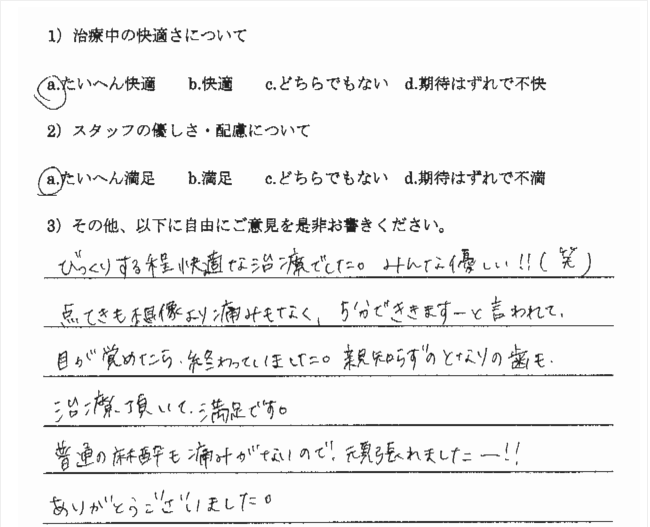 1) 治療中の快適さについて
a.たいへん快適 b.快適 c.どちらでもない d.期待はずれで不快
2) スタッフの優しさ・配慮について
a.たいへん満足 b.満足 c.どちらでもない d.期待はずれで不満
3) その他、以下に自由にご意見を是非お書きください。
びっくりする程、快適な治療でした。みんな優しい!!(笑)
点てきも想像より痛みもなく、5分できききますーと言われて、
目が覚めたら、終わっていました。親知らずのとなりの歯も、
治療、頂いて、満足です。
普通の麻酔も痛みがないので、頑張れましたー!!
ありがとうございました。